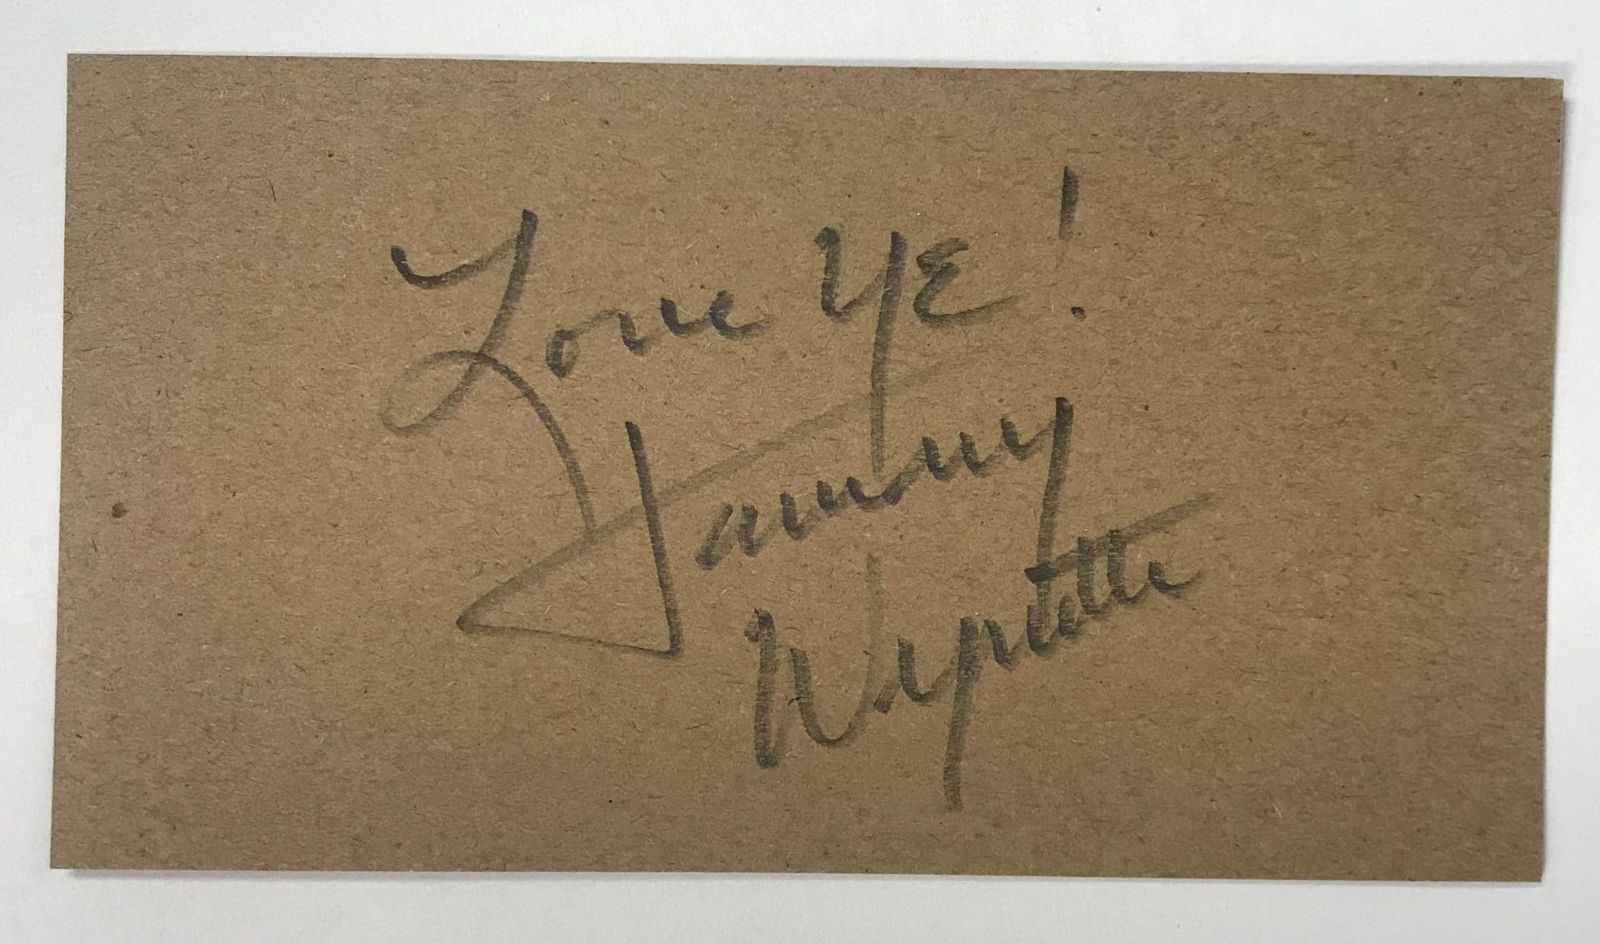 Love Ye!
Tammy
Wynette